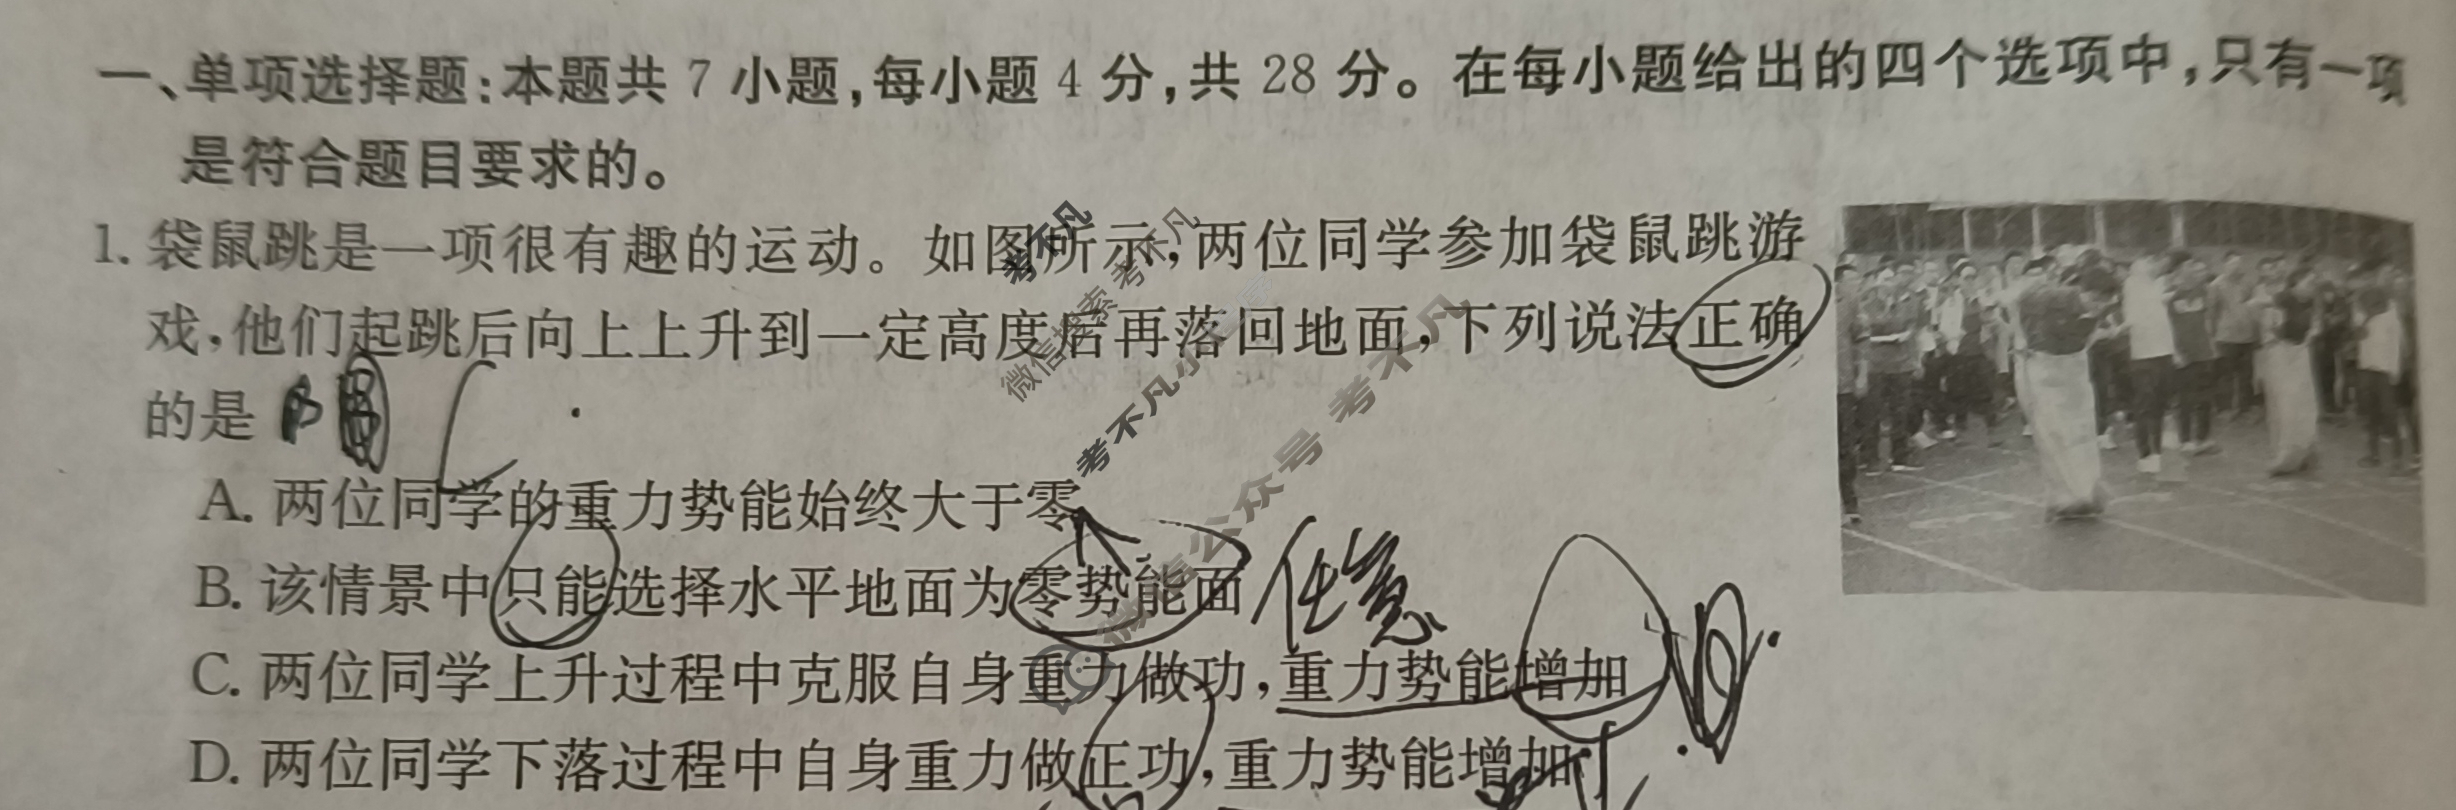 一、单项选择题:本题共 7 小题,每小题 4 分,共 28 分。在每小题给出的四个选项中,只有一项
是符合题目要求的。
1. 袋鼠跳是一项很有趣的运动。如图所示,两位同学参加袋鼠跳游
戏,他们起跳后向上上升到一定高度后再落回地面,下列说法正确
的是
A. 两位同学的重力势能始终大于零
B. 该情景中只能选择水平地面为零势能面 任意
C. 两位同学上升过程中克服自身重力做功,重力势能增加
D. 两位同学下落过程中自身重力做正功,重力势能增加
考不凡
微信搜索 考不凡
考不凡小
微信公众号 考不凡